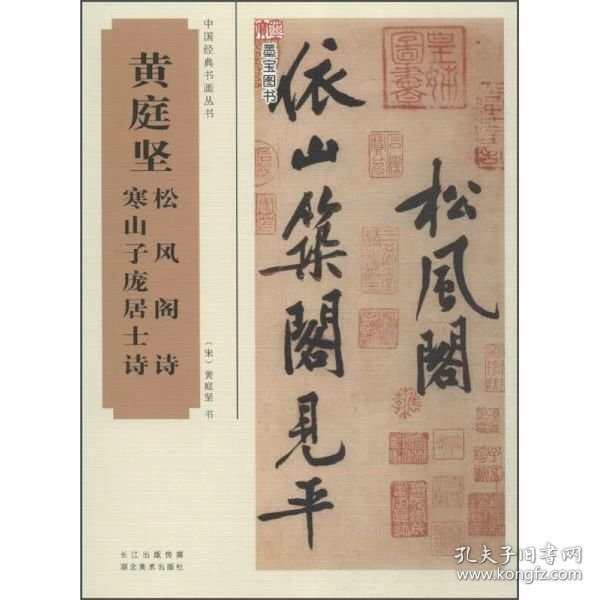 中国经典书画丛书
黄庭坚
松风阁诗
寒山子庞居士诗
（宋）黄庭坚 书
长江出版传媒
湖北美术出版社
松風閣
依山築閣見平
墨宝图书
孔夫子旧书网
www.kongfz.com